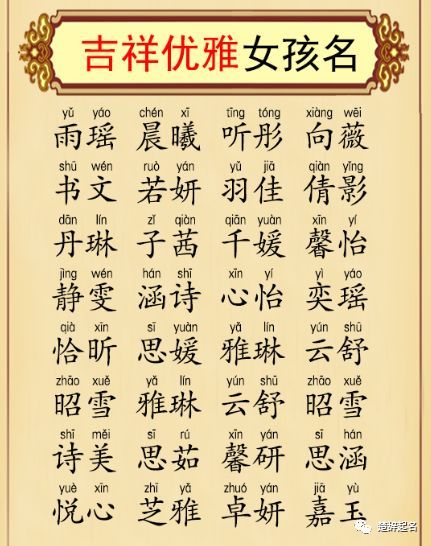 吉祥优雅女孩名
yǔ yáo chén xī tīng tóng xiàng wēi
雨瑶 晨曦 听彤 向薇
shū wén ruò yán yǔ jiā qiàn yǐng
书文 若妍 羽佳 倩影
dān lín zǐ qiàn qiān yuàn xīn yí
丹琳 子茜 千媛 馨怡
jìng wén hán shī xīn yí yì yáo
静雯 涵诗 心怡 奕瑶
qià xīn sī yuàn yǎ lín yún shū
恰昕 思媛 雅琳 云舒
zhāo xuě yǎ lín yún shū zhāo xuě
昭雪 雅琳 云舒 昭雪
shī měi sī rú xīn yán sī hán
诗美 思茹 馨研 思涵
yuè xīn zhī yǎ zhuó yán jiā yù
悦心 芝雅 卓妍 嘉玉
楚辞起名